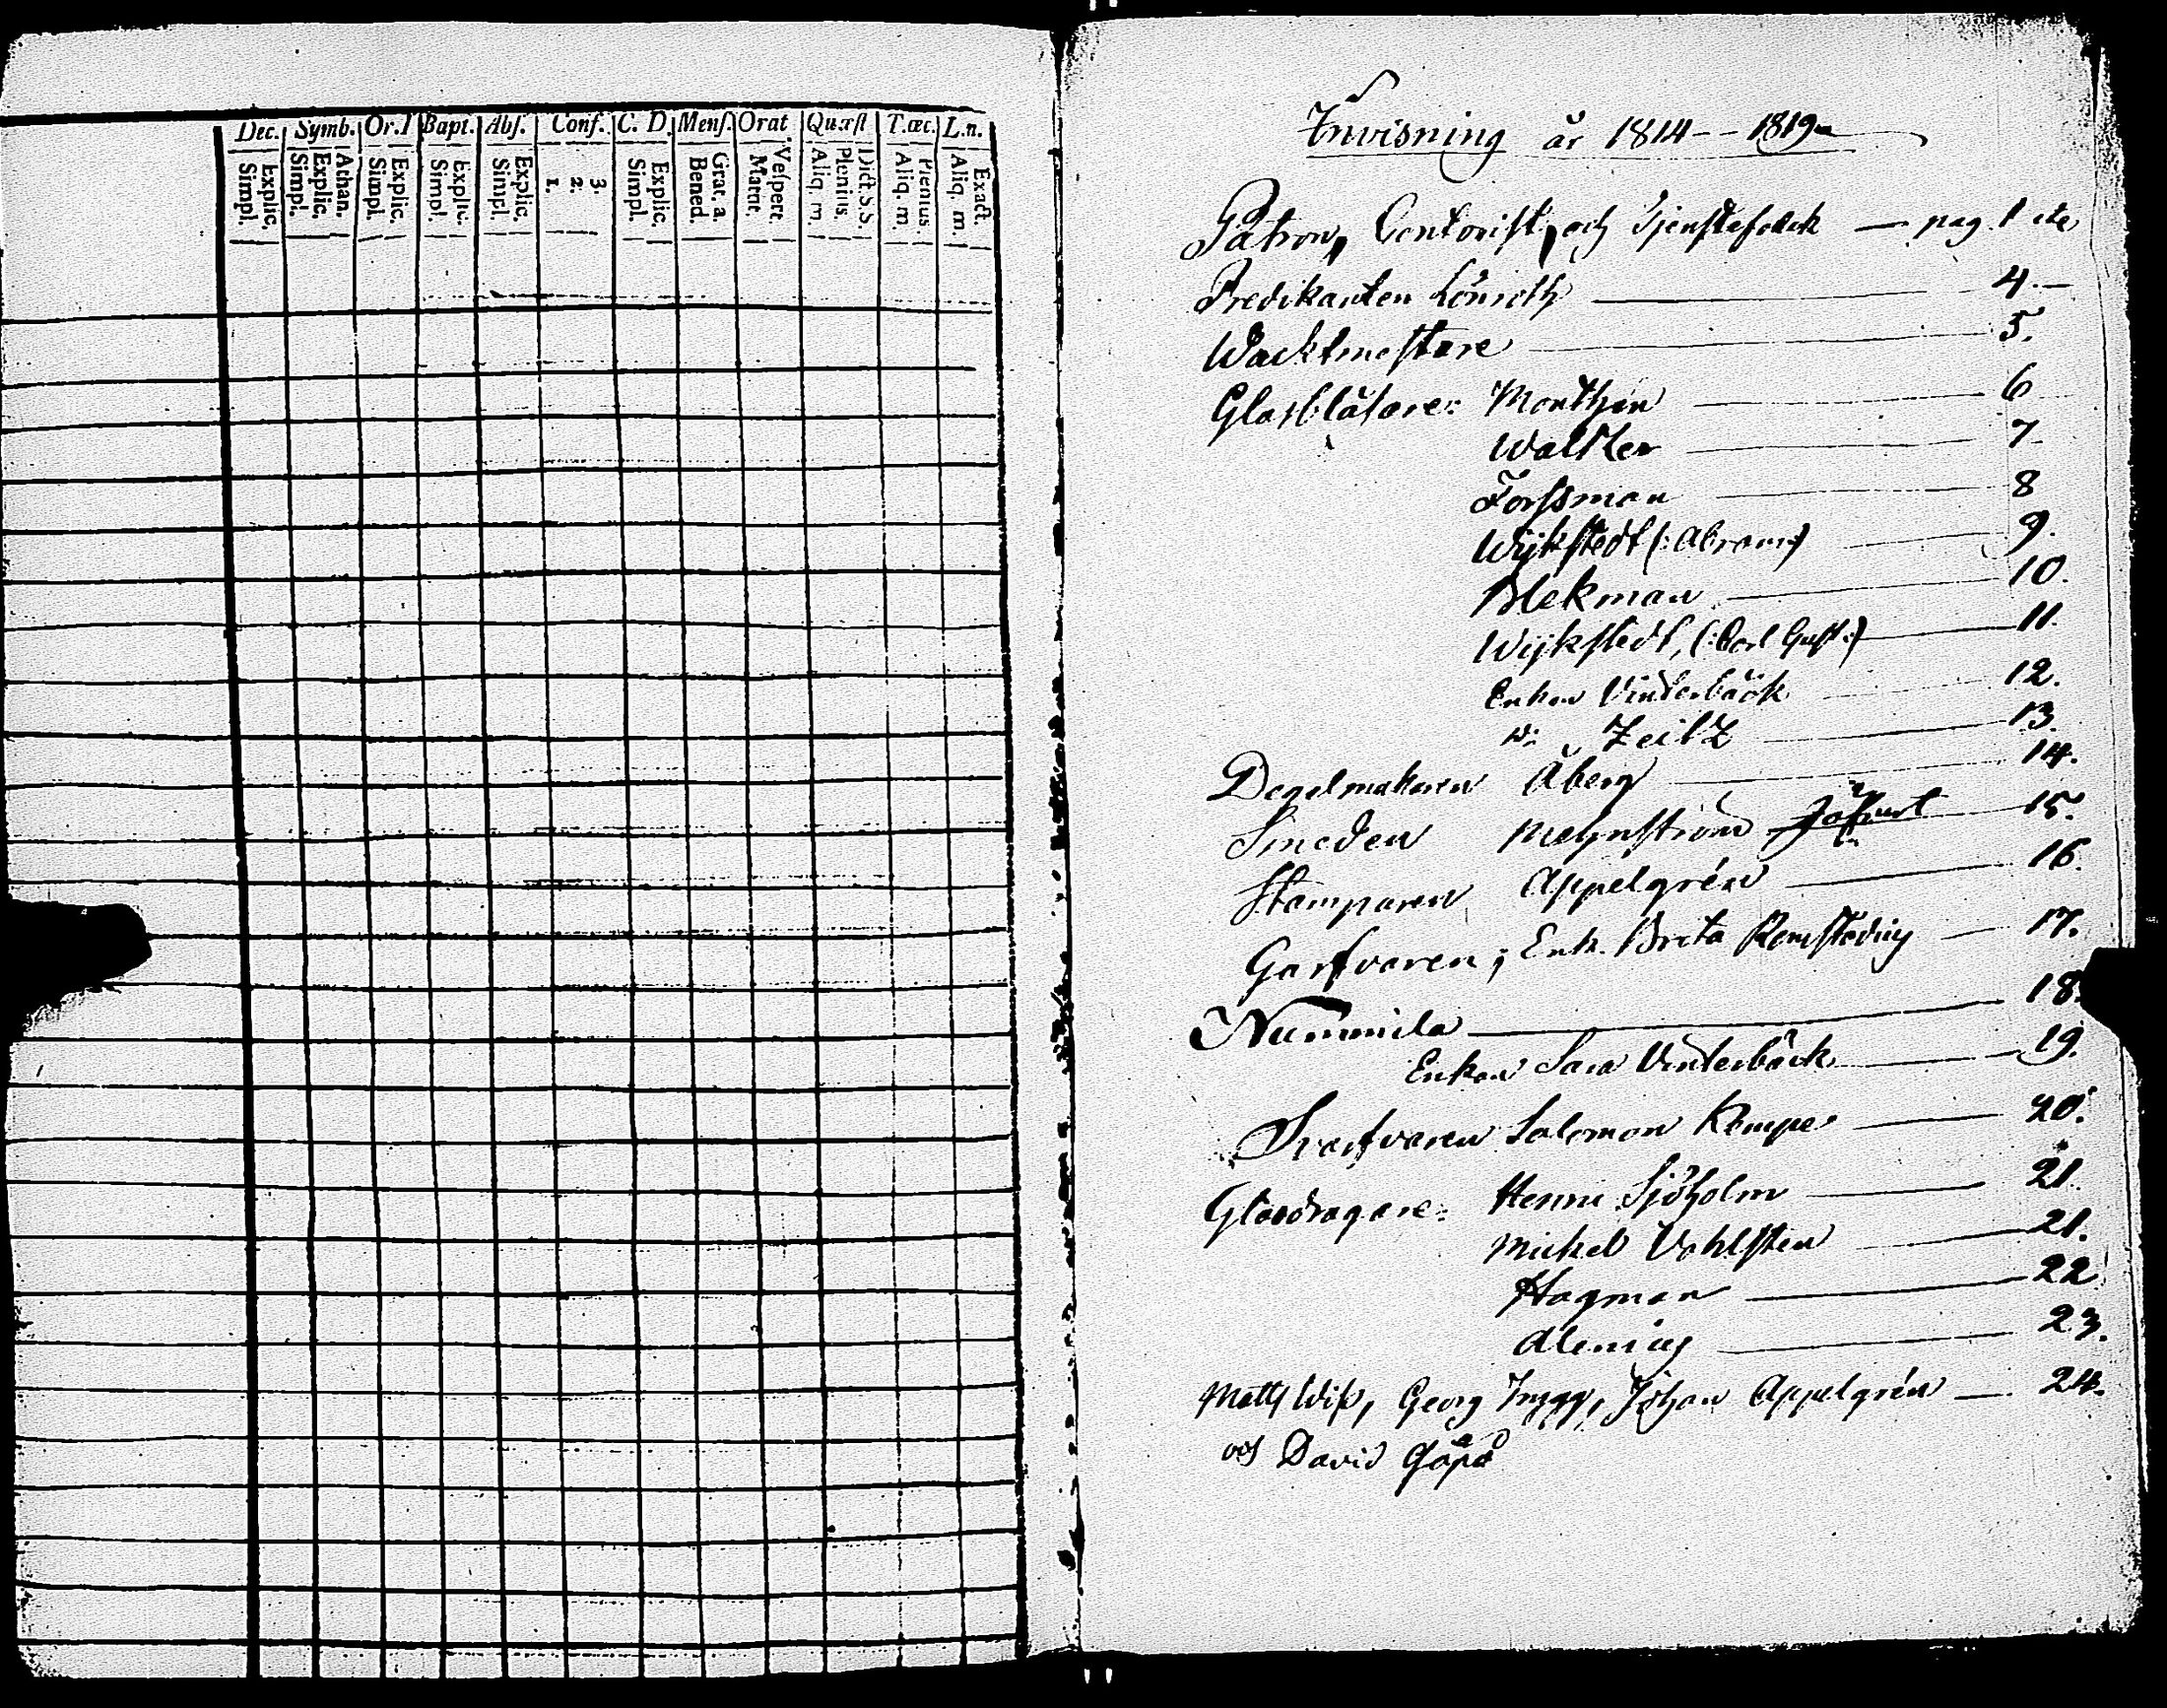 Dec. Symb. Or. I Bapt. Abs. Conf. C. D. Mens. Orat. Quæst T. œc. L. n.
Explic. Simpl. Athan. Explic. Simpl. Explic. Simpl. Explic. Simpl. Explic. Simpl. 3. 2. 1. Explic. Simpl. Grat. a. Bened. Vespert. Matut. Dict. S.S. Plenius. Aliq. m. Plenius Aliq. m. Exact. Aliq. m.
Invisning år 1814 -- 1819
Patron, Contorist, och Tjenstefolck — pag. 1 etc
Predikanten Lönroth — 4. —
Wacktmestare — 5.
Glasblåsare: Monthen — 6
Walther — 7
Forssman — 8
Wijkstedt (: Abram:) — 9.
Blekman — 10.
Wijkstedt, (: Carl Gust :) — 11.
Enkan Vinterbäck — 12.
D: Zeitz — 13
Degelmakaren Åberg — 14.
Smeden — 15.
Stamparen Appelgrén — 16.
Garfvaren; Enk. Brita — 17.
Nummila — 18.
Enkan Sara Vinterbäck — 19.
Svarfvaren Salomon Kempe — 20.
Glasdragare: Henric Sjöholm — 21
Mickel Vahlsten — 21.
Hagman — 22
Alenius — 23.
Matts Wiss, Georg Trygg, Johan Appelgrén — 24.
och David